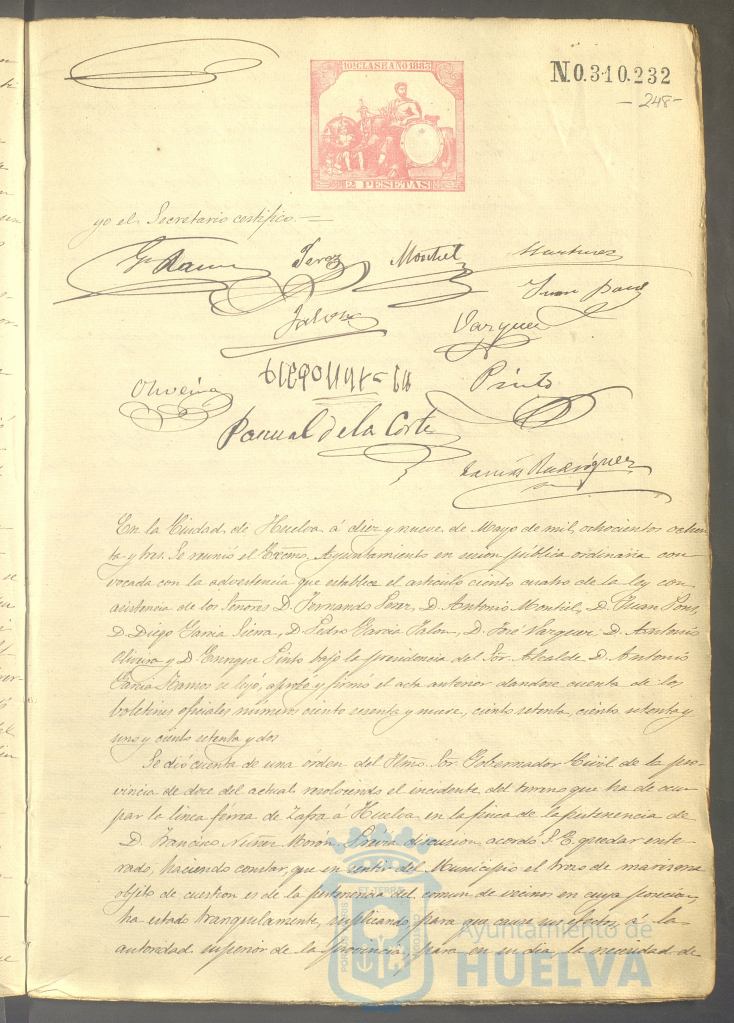 10ª CLASE AÑO 1883
2 PESETAS
N.0.310.232
-248-
yo el Secretario certifico.=
Gª Ramos Perez Montiel Martinez
Juan Pons
Jalon Vazquez
Oliveira Pinto
Pascual de la Corte
Rodriguez
En la Ciudad de Huelva á diez y nueve de Mayo de mil ochocientos ochen
ta y tres. Se reunió el Excmo. Ayuntamiento en sesion pública ordinaria con
vocada con la advertencia que establece el articulo ciento cuatro de la ley con
asistencia de los Señores D. Fernando Perez, D. Antonio Montiel, D. Juan Pons,
D. Diego Garcia Sierra, D. Pedro Garcia Jalon, D. José Vazquez D. Antonio
Oliveira y D. Enrique Pinto bajo la presidencia del Sor. Alcalde D. Antonio
Garcia Ramos se leyó, aprobó y firmó el acta anterior dandose cuenta de los
boletines oficiales número ciento sesenta y nueve, ciento setenta, ciento setenta y
uno y ciento setenta y dos
Se dió cuenta de una órden del Iltmo. Sor. Gobernador Civil de la pro-
vincia de doce del actual resolviendo el incidente del terreno que ha de ocu
par la linea férrea de Zafra á Huelva en la finca de la pertenencia de
D. Francisco Nuñez Morón. Previa discusion acordó S. E. quedar ente
rado, haciendo constar, que en sentir del Municipio el trozo de marisma
objeto de cuestion es de la pertenencia del comun de vecinos en cuya posecion
ha estado tranquilamente, suplicando para que cause sus efectos, á la
autoridad superior de la provincia, para en su dia, la necesidad de
Ayuntamiento de
HUELVA